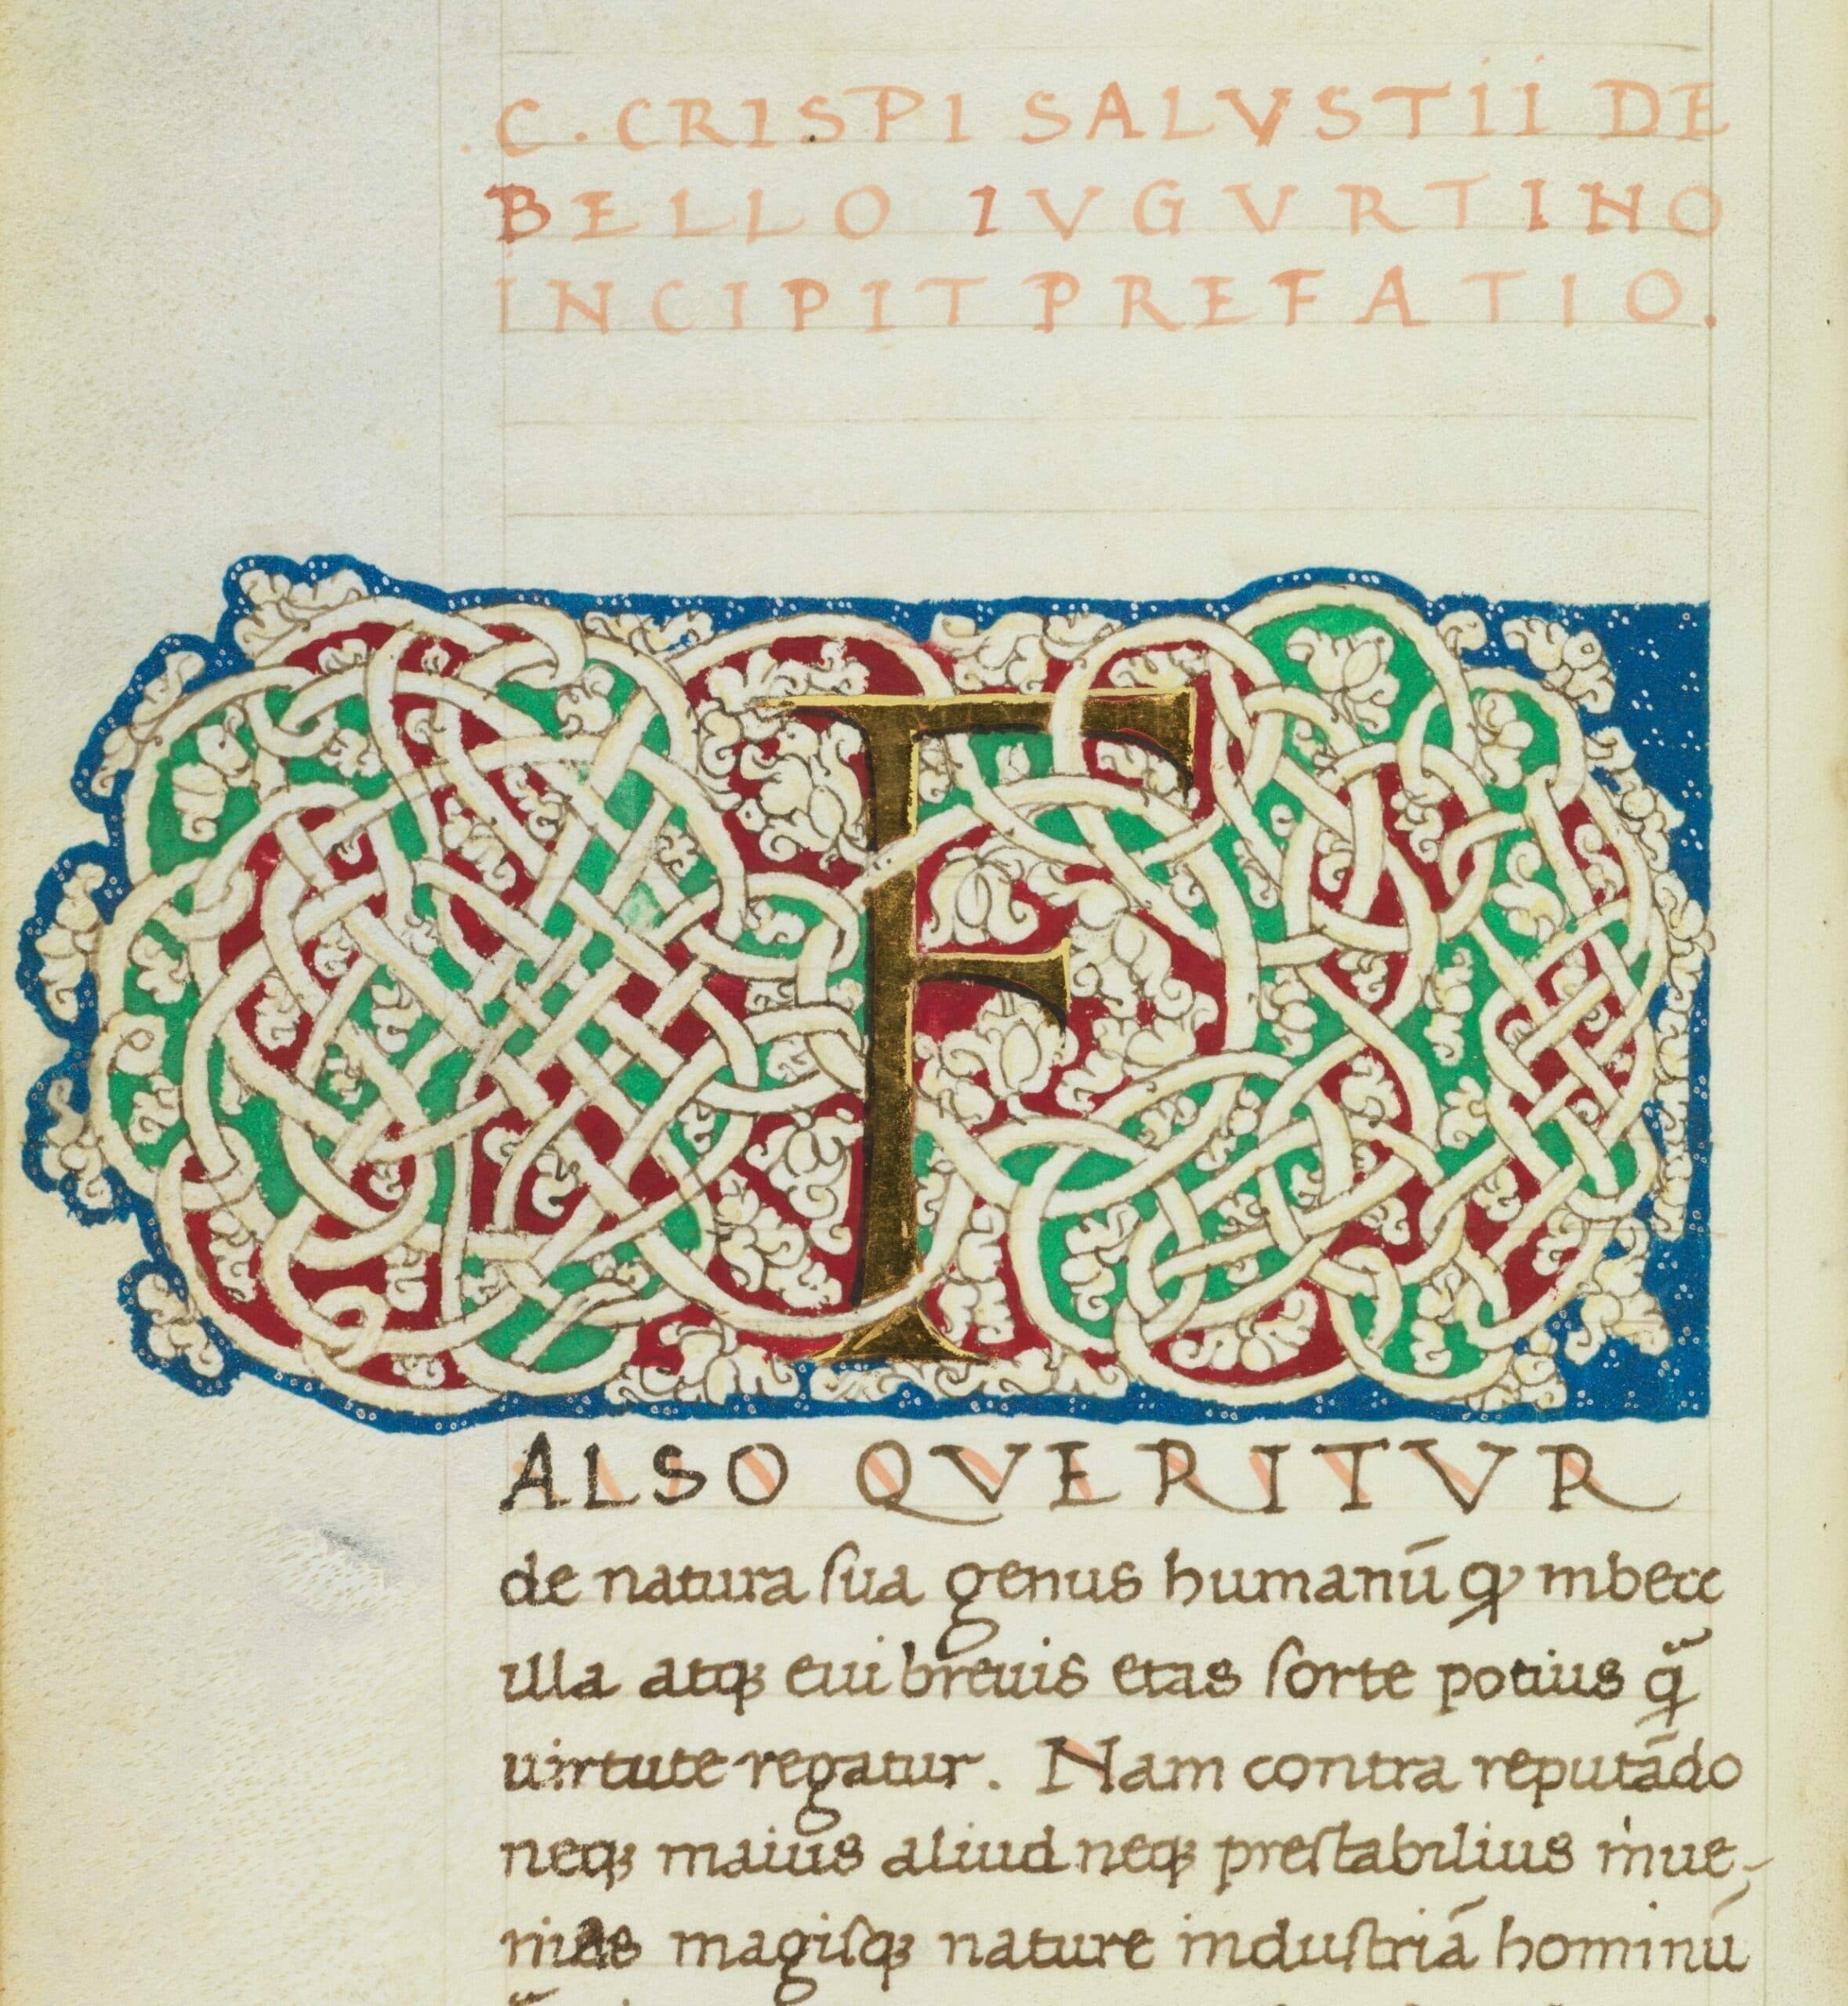 C. CRISPI SALVSTII DE
BELLO IVGVRTINO
INCIPIT PREFATIO.
F
ALSO QVERITVR
de natura ſua genus humanū ꝙ inbecc
illa atqꝫ eui breuis etas ſorte potius q̃
uirtute regatur. Nam contra reputādo
neqꝫ maius aliud neqꝫ preſtabilius inue-
nias magiſqꝫ nature induſtriā hominū